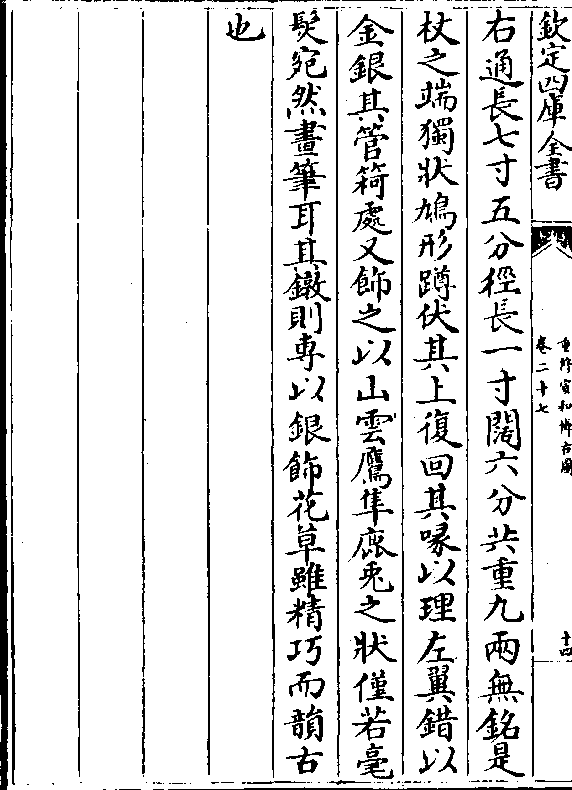 欽定四庫全書
重修宣和博古圖
卷二十七
十四
右通長七寸五分徑長一寸闊六分共重九兩無銘是
杖之端獨狀鳩形蹲伏其上復回其喙以理左翼錯以
金銀其管箍處又飾之以山雲鷹隼鹿兎之狀僅若毫
髮宛然畫筆耳其鐓則專以銀飾花草雖精巧而韻古
也